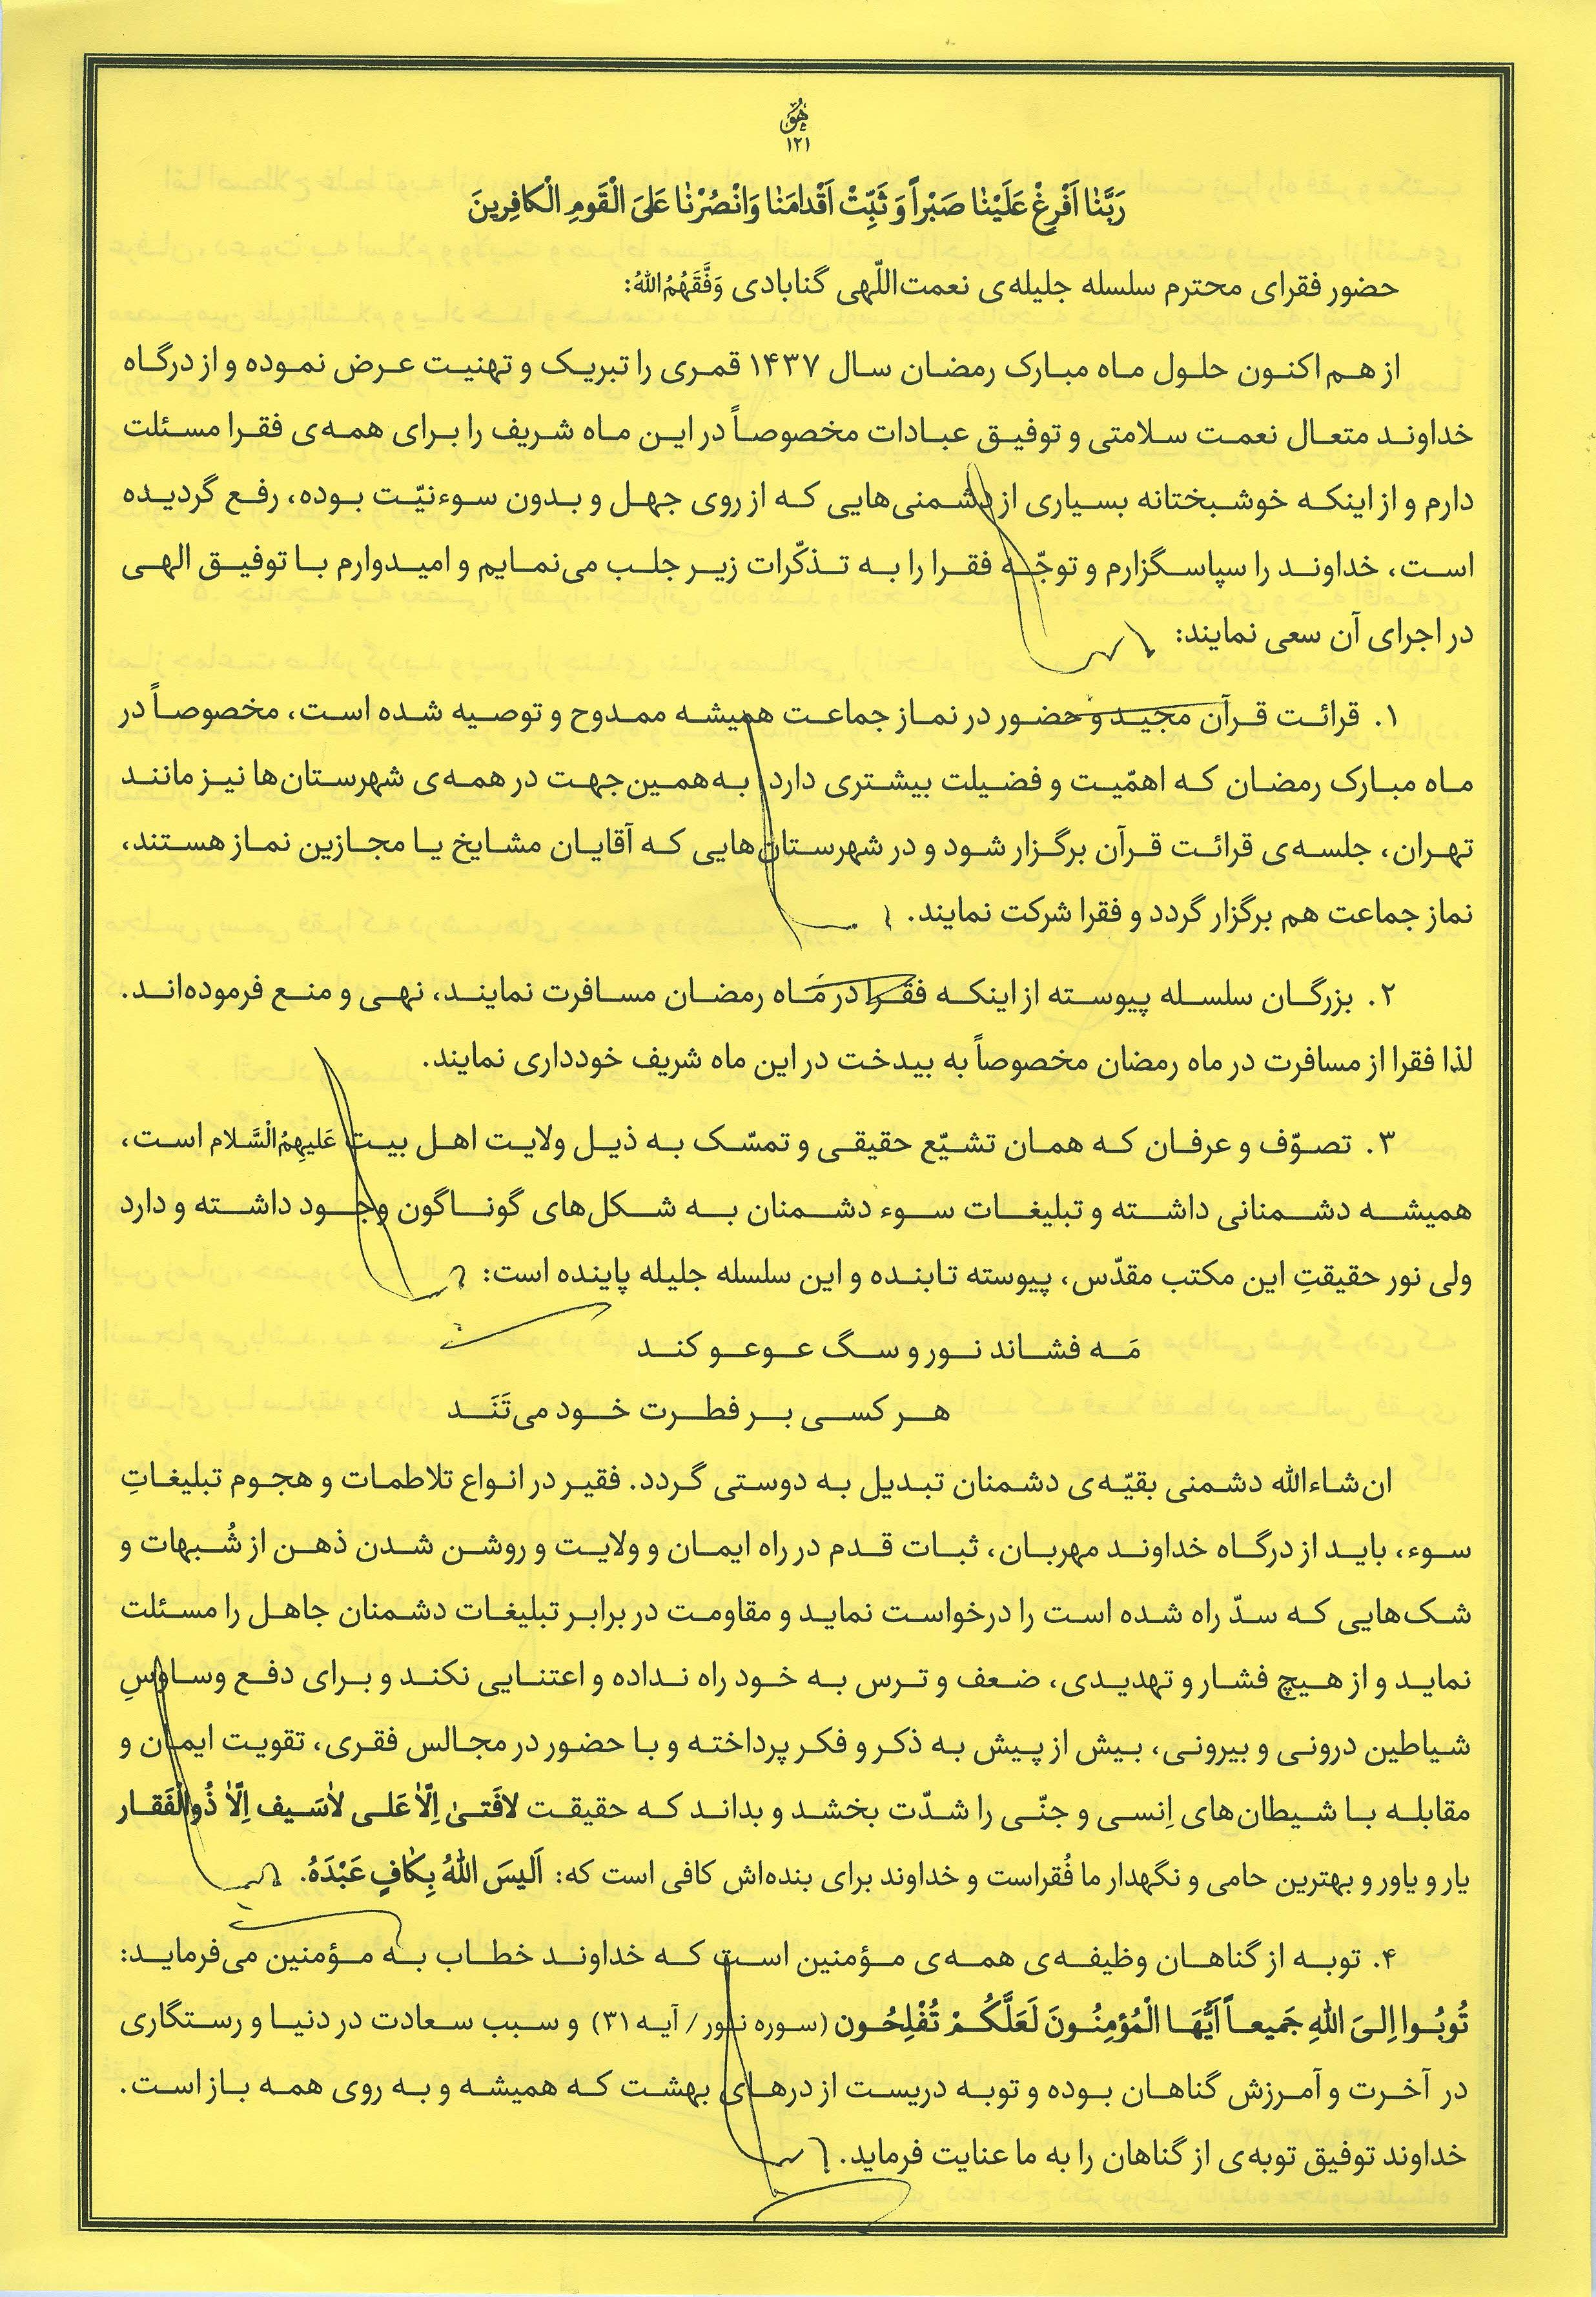 هُوَ
۱۲۱
رَبَّنٰا اَفْرِغْ عَلَیْنٰا صَبْراً وَ ثَبِّتْ اَقْدامَنٰا وَانْصُرْنٰا عَلیَ الْقَومِ الْکافِرِینَ
حضور فقرای محترم سلسله جلیله‌ی نعمت‌اللّهی گنابادی وَفَّقَهُمُ‌اللهُ:
از هم اکنون حلول ماه مبارک رمضان سال ۱۴۳۷ قمری را تبریک و تهنیت عرض نموده و از درگاه
خداوند متعال نعمت سلامتی و توفیق عبادات مخصوصاً در این ماه شریف را برای همه‌ی فقرا مسئلت
دارم و از اینکه خوشبختانه بسیاری از دشمنی‌هایی که از روی جهل و بدون سوءنیّت بوده، رفع گردیده
است، خداوند را سپاسگزارم و توجّه فقرا را به تذکّرات زیر جلب می‌نمایم و امیدوارم با توفیق الهی
در اجرای آن سعی نمایند:
۱. قرائت قرآن مجید و حضور در نماز جماعت همیشه ممدوح و توصیه شده است، مخصوصاً در
ماه مبارک رمضان که اهمّیت و فضیلت بیشتری دارد به‌همین‌جهت در همه‌ی شهرستان‌ها نیز مانند
تهران، جلسه‌ی قرائت قرآن برگزار شود و در شهرستان‌هایی که آقایان مشایخ یا مجازین نماز هستند،
نماز جماعت هم برگزار گردد و فقرا شرکت نمایند.
۲. بزرگان سلسله پیوسته از اینکه فقرا در ماه رمضان مسافرت نمایند، نهی و منع فرموده‌اند.
لذا فقرا از مسافرت در ماه رمضان مخصوصاً به بیدخت در این ماه شریف خودداری نمایند.
۳. تصوّف و عرفان که همان تشیّع حقیقی و تمسّک به ذیل ولایت اهل بیت عَلیهِمُ‌الْسَّلام است،
همیشه دشمنانی داشته و تبلیغات سوء دشمنان به شکل‌های گوناگون وجود داشته و دارد
ولی نور حقیقتِ این مکتب مقدّس، پیوسته تابنده و این سلسله جلیله پاینده است:
مَه فشاند نور و سگ عوعو کند
هر کسی بر فطرت خود می‌تَنَد
ان‌شاءالله دشمنی بقیّه‌ی دشمنان تبدیل به دوستی گردد. فقیر در انواع تلاطمات و هجوم تبلیغاتِ
سوء، باید از درگاه خداوند مهربان، ثبات قدم در راه ایمان و ولایت و روشن شدن ذهن از شُبهات و
شک‌هایی که سدّ راه شده است را درخواست نماید و مقاومت در برابر تبلیغات دشمنان جاهل را مسئلت
نماید و از هیچ فشار و تهدیدی، ضعف و ترس به خود راه نداده و اعتنایی نکند و برای دفع وساوسِ
شیاطین درونی و بیرونی، بیش از پیش به ذکر و فکر پرداخته و با حضور در مجالس فقری، تقویت ایمان و
مقابله با شیطان‌های اِنسی و جنّی را شدّت بخشد و بداند که حقیقت لافَتیٰ اِلّاٰ عَلی لاٰسَیف اِلّاٰ ذُوالْفَقار
یار و یاور و بهترین حامی و نگهدار ما فُقراست و خداوند برای بنده‌اش کافی است که: اَلیسَ اللهُ بِکافٍ عَبْدَهُ.
۴. توبه از گناهان وظیفه‌ی همه‌ی مؤمنین است که خداوند خطاب به مؤمنین می‌فرماید:
تُوبُوا اِلیَ اللهِ جَمیعاً اَیُّهَا الْمُؤمِنُونَ لَعَلَّکُمْ تُفْلِحُون (سوره نور/ آیه ۳۱) و سبب سعادت در دنیا و رستگاری
در آخرت و آمرزش گناهان بوده و توبه دریست از درهای بهشت که همیشه و به روی همه باز است.
خداوند توفیق توبه‌ی از گناهان را به ما عنایت فرماید.